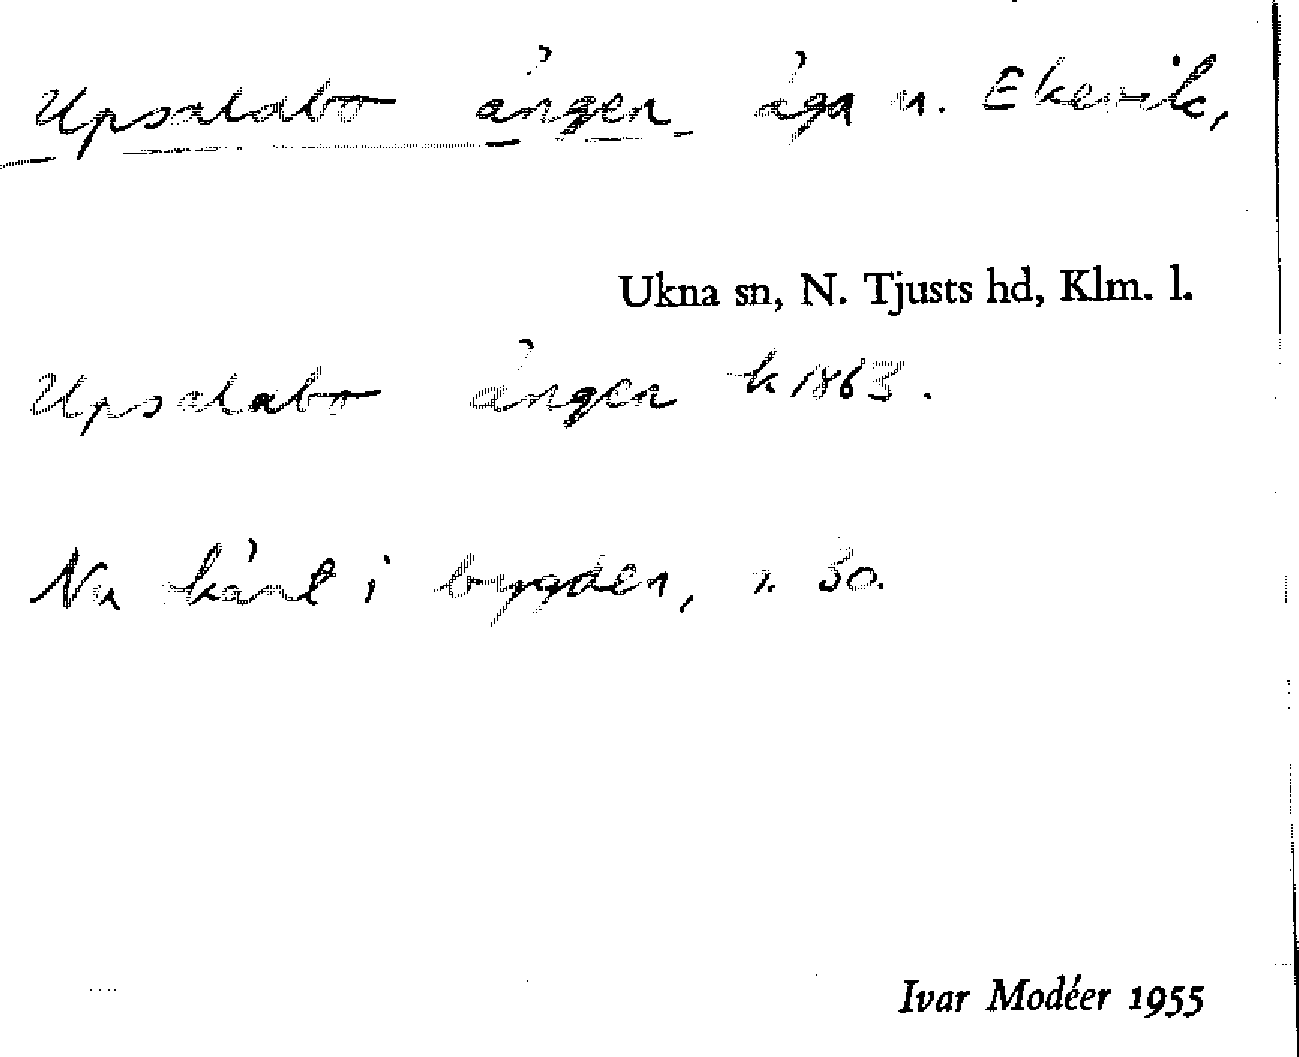 Upsalabo ängen äga u. Ekevik,
Ukna sn, N. Tjusts hd, Klm. l.
Upsalabo ängen k 1863.
Nu känt i bygden, 30.
Ivar Modéer 1955